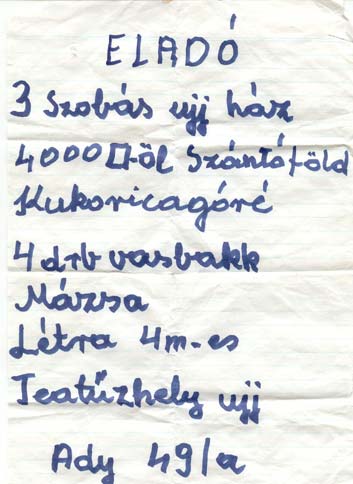 ELADÓ
3 szobás ujj ház
4000□-öl Szántóföld
Kukoricagóré
4 drb vasbakk
Mázsa
Létra 4m-es
Teatűzhely ujj
Ady 49/a